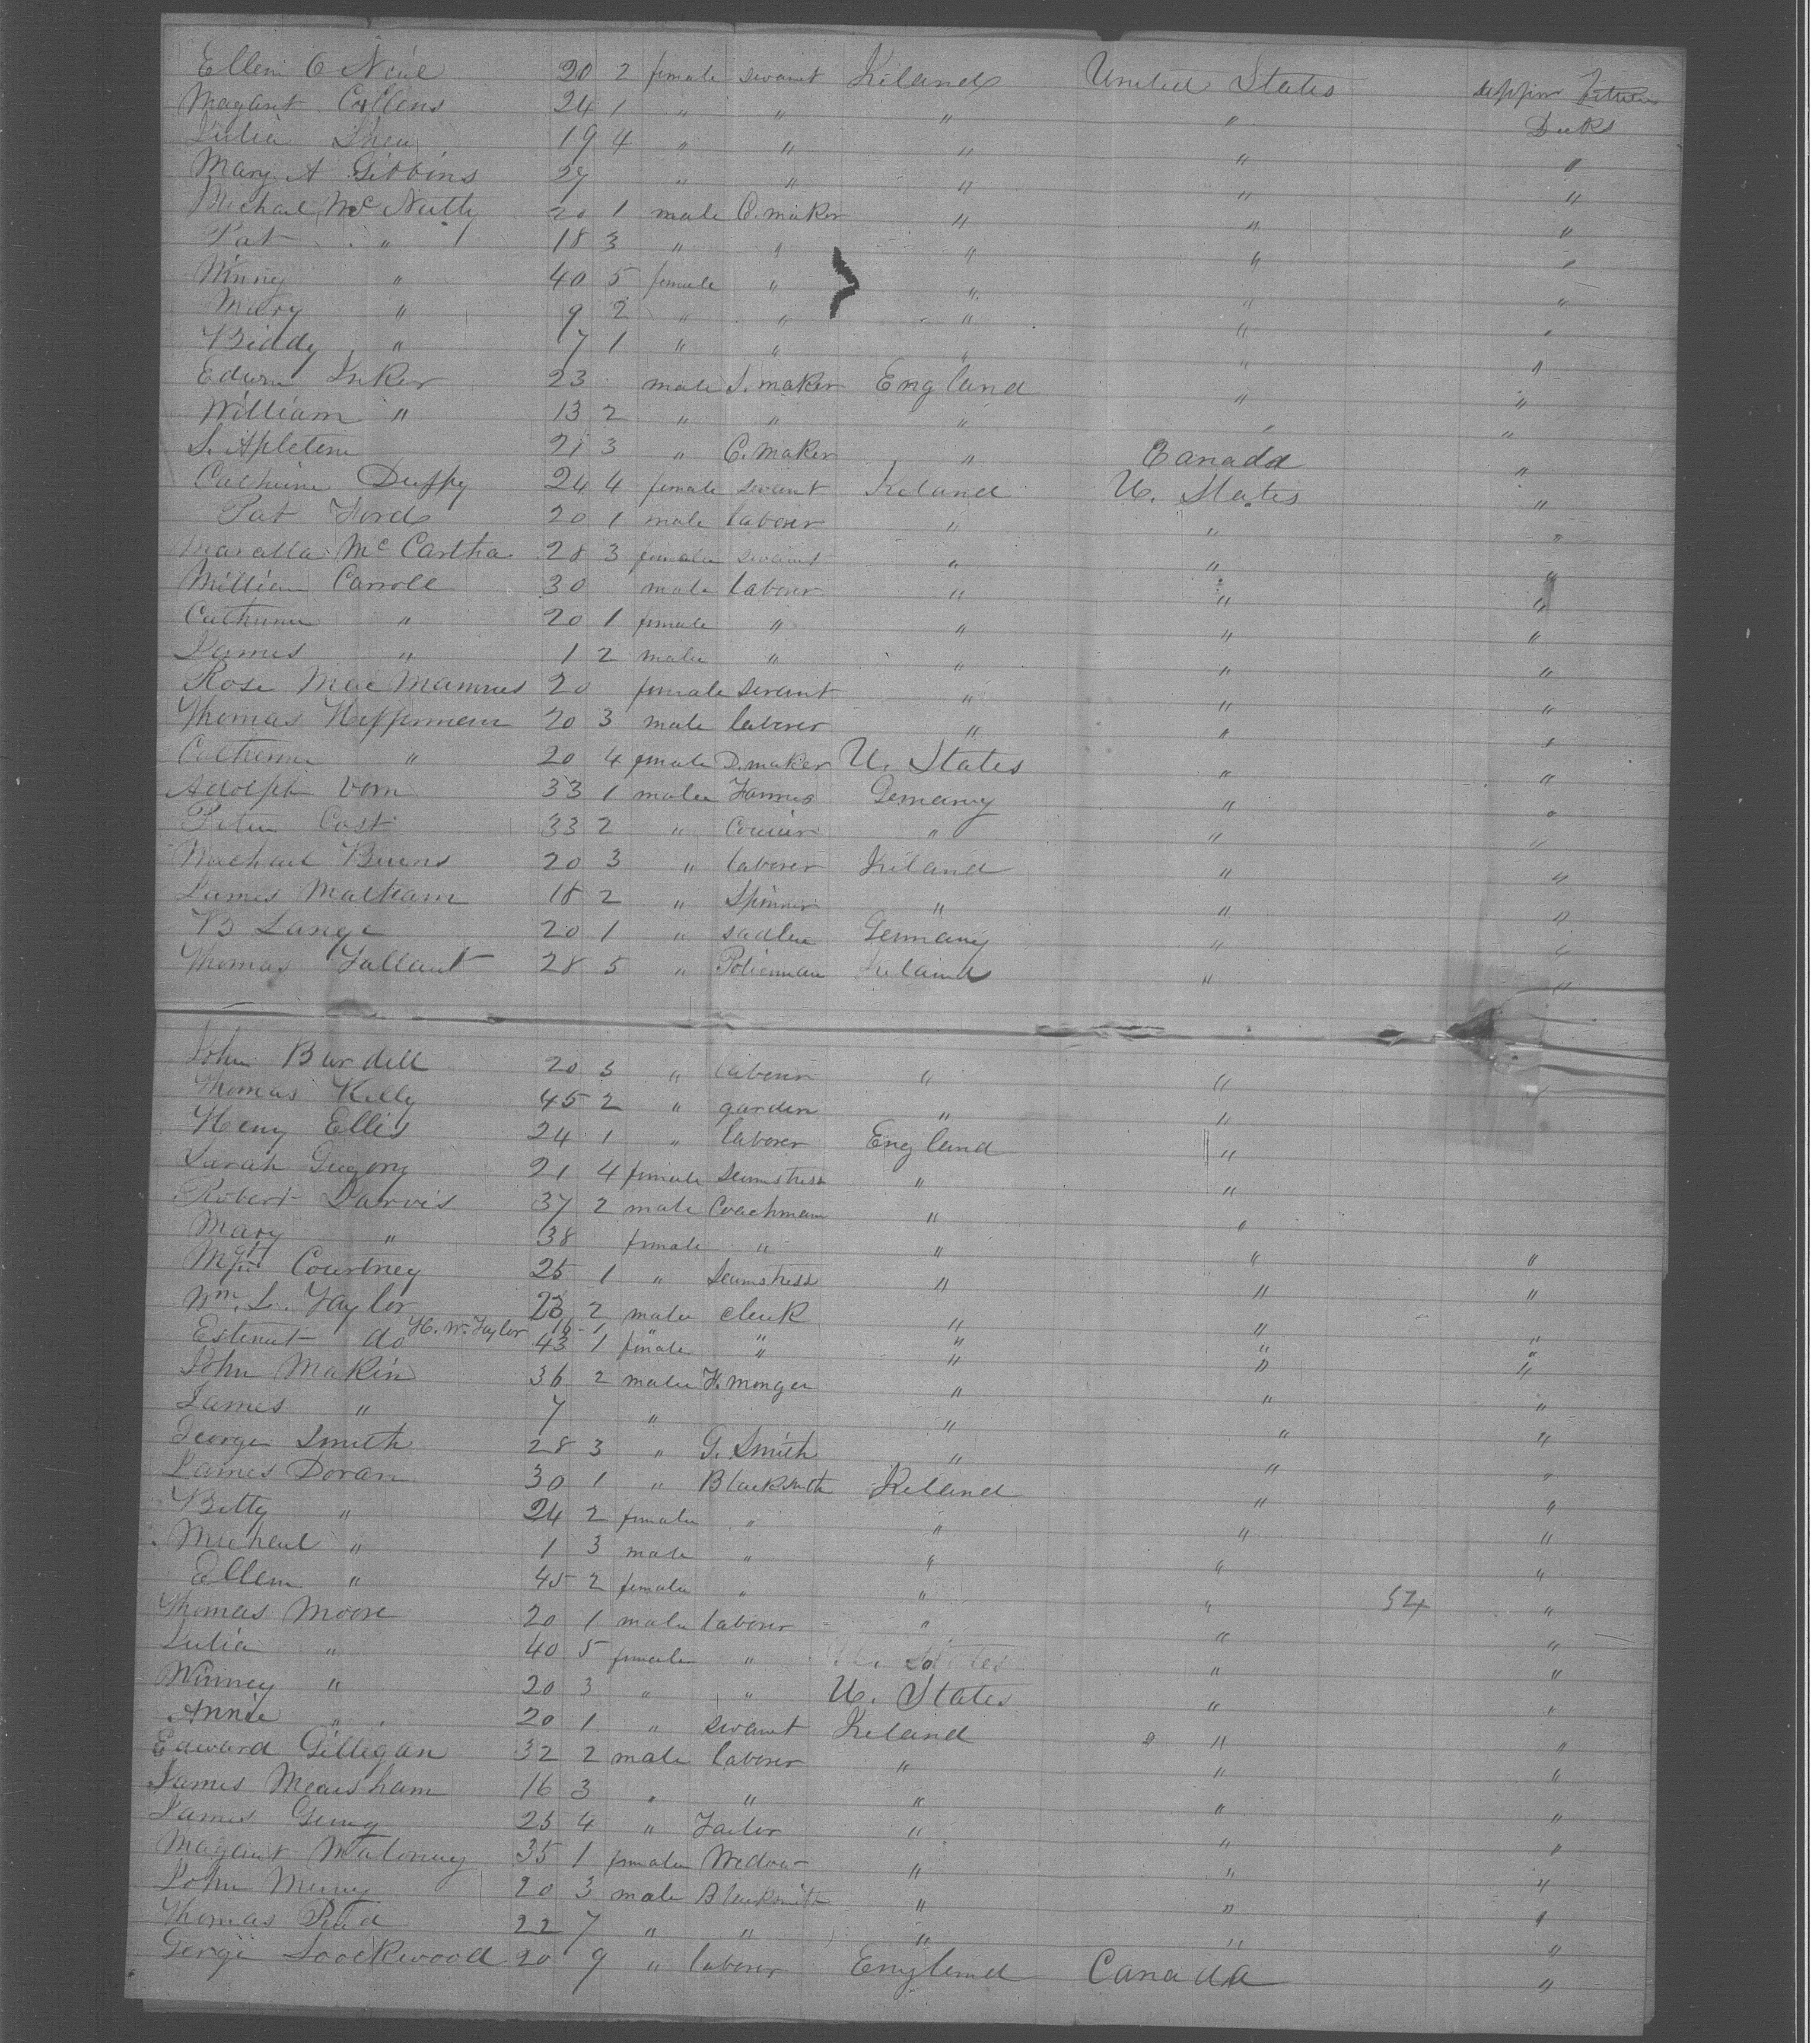 Ellen O Neil 20 2 female servant Ireland United States
Magaret Collens 24 1 " " " "
Julia Shea 19 4 " " " " "
Mary A Gibbins 27 " " " " "
Michael McNulty 20 1 male C. maker " " "
Pat " 18 3 " " " " "
Winny " 40 5 female " " " "
Mary " 9 2 " " " " "
Biddy " 7 1 " " " " "
Edwin Inker 23 male S. maker England " "
William " 13 2 " " " " "
S. Apleton 21 3 " C. maker " Canada "
Catherine Duffy 24 4 female servant Ireland U. States "
Pat Ford 20 1 male laborer " " "
McCartha 28 3 female servant " " "
William Carroll 30 male laborer " " "
Catherine " 20 1 female " " " "
James " 1 2 male " " " "
Rose Mac Manus 20 female servant " " "
Thomas Heffernan 20 3 male laborer " " "
Catherine " 20 4 female D. maker U. States " "
Adolph Vom 33 1 male Germany " "
Peter Cost 33 2 " " " "
Michael Burns 20 3 " laborer Ireland " "
James 18 2 " Spinner " " "
B Lange 20 1 " sadler Germany " "
Thomas Gallant 28 5 " Policeman Ireland " "
John Burdell 20 3 " laborer " " "
Thomas Kelly 45 2 " garden " "
Henry Ellis 24 1 " laborer England "
Sarah Gregory 21 4 female Seamstress " "
Robert Jarvis 37 2 male Coachman " "
Mary " 38 female " " " "
Mgt Courtney 25 1 " Seamstress " " "
Wm. L. Taylor 23 2 male clerk " " "
H. W. Taylor 16 1 " " " " "
do 43 1 female " " " "
John Makin 36 2 male F. monger " " "
James " 7 " " " "
George Smith 28 3 " G. Smith " " "
James Doran 30 1 " Blacksmith Ireland " "
Betty " 24 2 female " " " "
Micheal " 1 3 male " " " "
Ellen " 45 2 female " " " "
Thomas Moore 20 1 male laborer " " "
Julia " 40 5 female " U. States " "
Winney " 20 3 " " U. States " "
Annie " 20 1 " servant Ireland " "
Edward Gilligan 32 2 male laborer " " "
James Mearsham 16 3 " " " " "
James 25 4 " Tailor " " "
Magaret Maloney 35 1 female Widow " " "
John 20 3 male Blacksmith " " "
Thomas 22 7 " " " " "
Gerge Loockwood 20 9 " laborer England Canada "